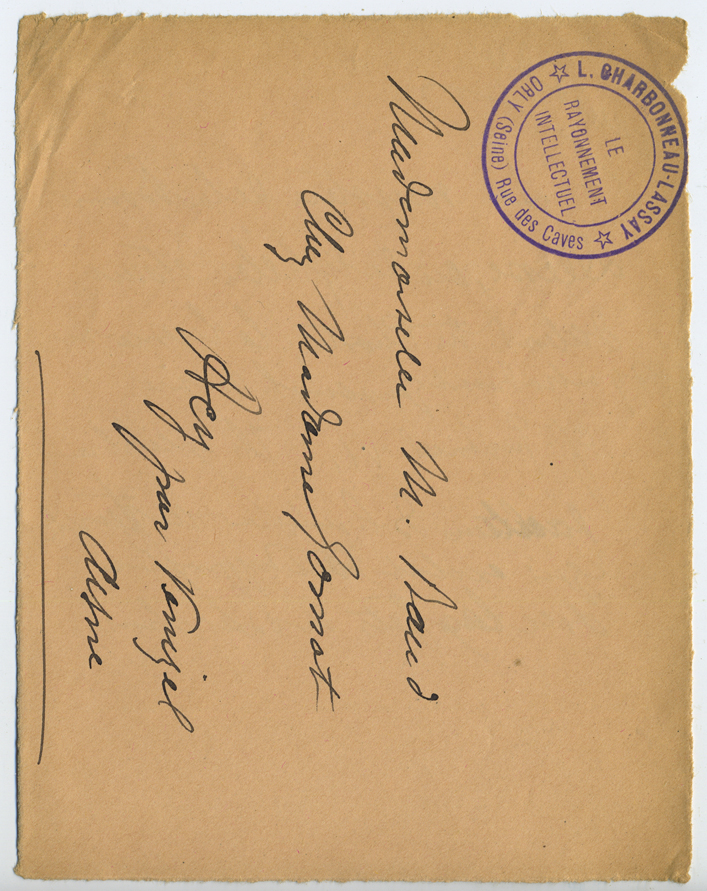 L. CHARBONNEAU-LASSAY
ORLY (Seine) Rue des Caves
LE
RAYONNEMENT
INTELLECTUEL
Mademoiselle M. Baud
Chez Madame
Acy
par
Aisne